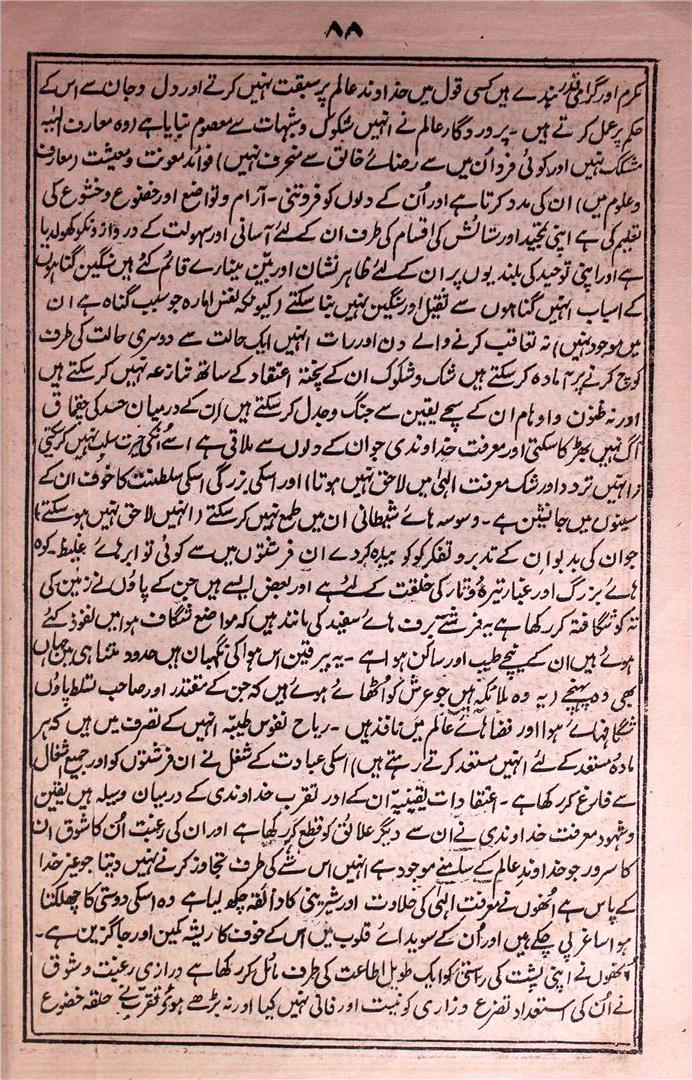 ۸۸
مکرم اور گرامی قدر بندے ہیں کسی قول میں خداوند عالم پر سبقت نہیں کرتے اور دل وجان سے اس کے
حکم پر عمل کرتے ہیں ۔ پروردگار عالم نے انہیں شکوک وشبہات سے معصوم بنایا ہے (وہ معارف الٰہیہ
مشکک نہیں اور کوئی فرد اُن میں سے رضائے خالق سے منحرف نہیں) فوائد معونت ومعیشت (معارف
وعلوم میں) ان کی مدد کرتا ہے اور اُن کے دلوں کو فروتنی ۔ آرام و تواضع اور خضوع وخشوع کی
تعلیم کی ہے اپنی تمجید اور ستائش کی اقسام کی طرف ان کے لئے آسانی اور سہولت کے دروازونکو کھولدیا
ہے اور اپنی توحید کی بلندیوں پر ان کے لئے ظاہر نشان اور بیّن مینارے قائم کئے ہیں سنگین گناہوں
کے اسباب انہیں گناہوں سے ثقیل اور سنگین نہیں بنا سکتے (کیونکہ نفس امارہ جو سبب گناہ ہے ان
میں موجود نہیں) نہ تعاقب کرنے والے دن اور رات انہیں ایک حالت سے دوسری حالت کی طرف
کوچ کرنے پر آمادہ کر سکتے ہیں شک وشکوک ان کے پختہ اعتقاد کے ساتھ تنازعہ نہیں کر سکتے ہیں
اور نہ ظنون و اوہام ان کے سچے یقین سے جنگ وجدل کر سکتے ہیں اُن کے درمیان حسد کی چقماق
آگ نہیں بھڑکا سکتی اور معرفت خداوندی جو ان کے دلوں سے ملاقی ہے اسے اُنکی حیرت سلب نہیں کر سکتی
(انہیں تردد اور شک معرفت الٰہی میں لاحق نہیں ہوتا) اور اسکی بزرگی اسکی سلطنت کا خوف ان کے
سینوں میں جانشین ہے ۔ وسوسہ ہائے شیطانی ان میں طمع نہیں کر سکتے (انہیں لاحق نہیں ہو سکتے)
جو ان کی بدبو ان کے تدبر وتفکر کو کو بیدہ کردے ان فرشتوں میں سے کوئی تو ابر ہائے غلیظ ۔ کوہ
ہائے بزرگ اور غبار تیرۂ وتار کی خلقت کے لئے ہے اور بعض ایسے ہیں جن کے پاؤں نے زمین کی
تہ کو شگافتہ کر رکھا ہے یہ فرشتے بیرف ہائے سفید کی مانند ہیں کہ مواضع شگاف ہوا میں نفوذ کئے
ہوئے ہیں ان کے نیچے طیب اور ساکن ہوا ہے ۔ یہ بیرقین اس ہوا کی نگہبان ہیں حدود متناہی میں جہاں
بھی وہ پہنچے (یہ وہ ملائکہ ہیں جو عرش کو اٹھائے ہوئے ہیں کہ جن کے مقتدر اور صاحب تسلط پاؤں
شگافہائے ہوا اور فضاہائے عالم میں نافذ ہیں ۔ ریاح نفوس طیبہ انہیں کے تصرف میں ہیں کہ ہر
مادہ مستعد کے لئے انہیں مستعد کرتے رہتے ہیں) اسکی عبادت کے شغل نے ان فرشتوں کو اور جمیع اشغال
سے فارغ کر رکھا ہے ۔ اعتقادات یقینیہ ان کے اور تقرب خداوندی کے درمیان وسیلہ ہیں یقین
وشہود معرفت خداوندی نے ان سے دیگر علائق کو قطع کر رکھا ہے اور ان کی رغبت اُن کا شوق ان
کا سرور جو خداوند عالم کے سامنے موجود ہے انہیں اس شے کی طرف تجاوز کرنے نہیں دیتا جو غیر خدا
کے پاس ہے اُنھوں نے معرفت الٰہی کی حلاوت اور شیرینی کا ذائقہ چکھ لیا ہے وہ اسکی دوستی کا چھلکتا
ہوا ساغر پی چکے ہیں اور اُن کے سویدائے قلوب میں اس کے خوف کا ریشہ مکین اور جاگزین ہے ۔
اُنھوں نے اپنی پشت کی راستی کو ایک طویل اطاعت کی طرف مائل کر رکھا ہے درازی رغبت وشوق
نے اُن کی استعداد تضرع وزاری کو نیست اور فانی نہیں کیا اور نہ بڑھے ہوئے تقرب نے حلقہ خضوع